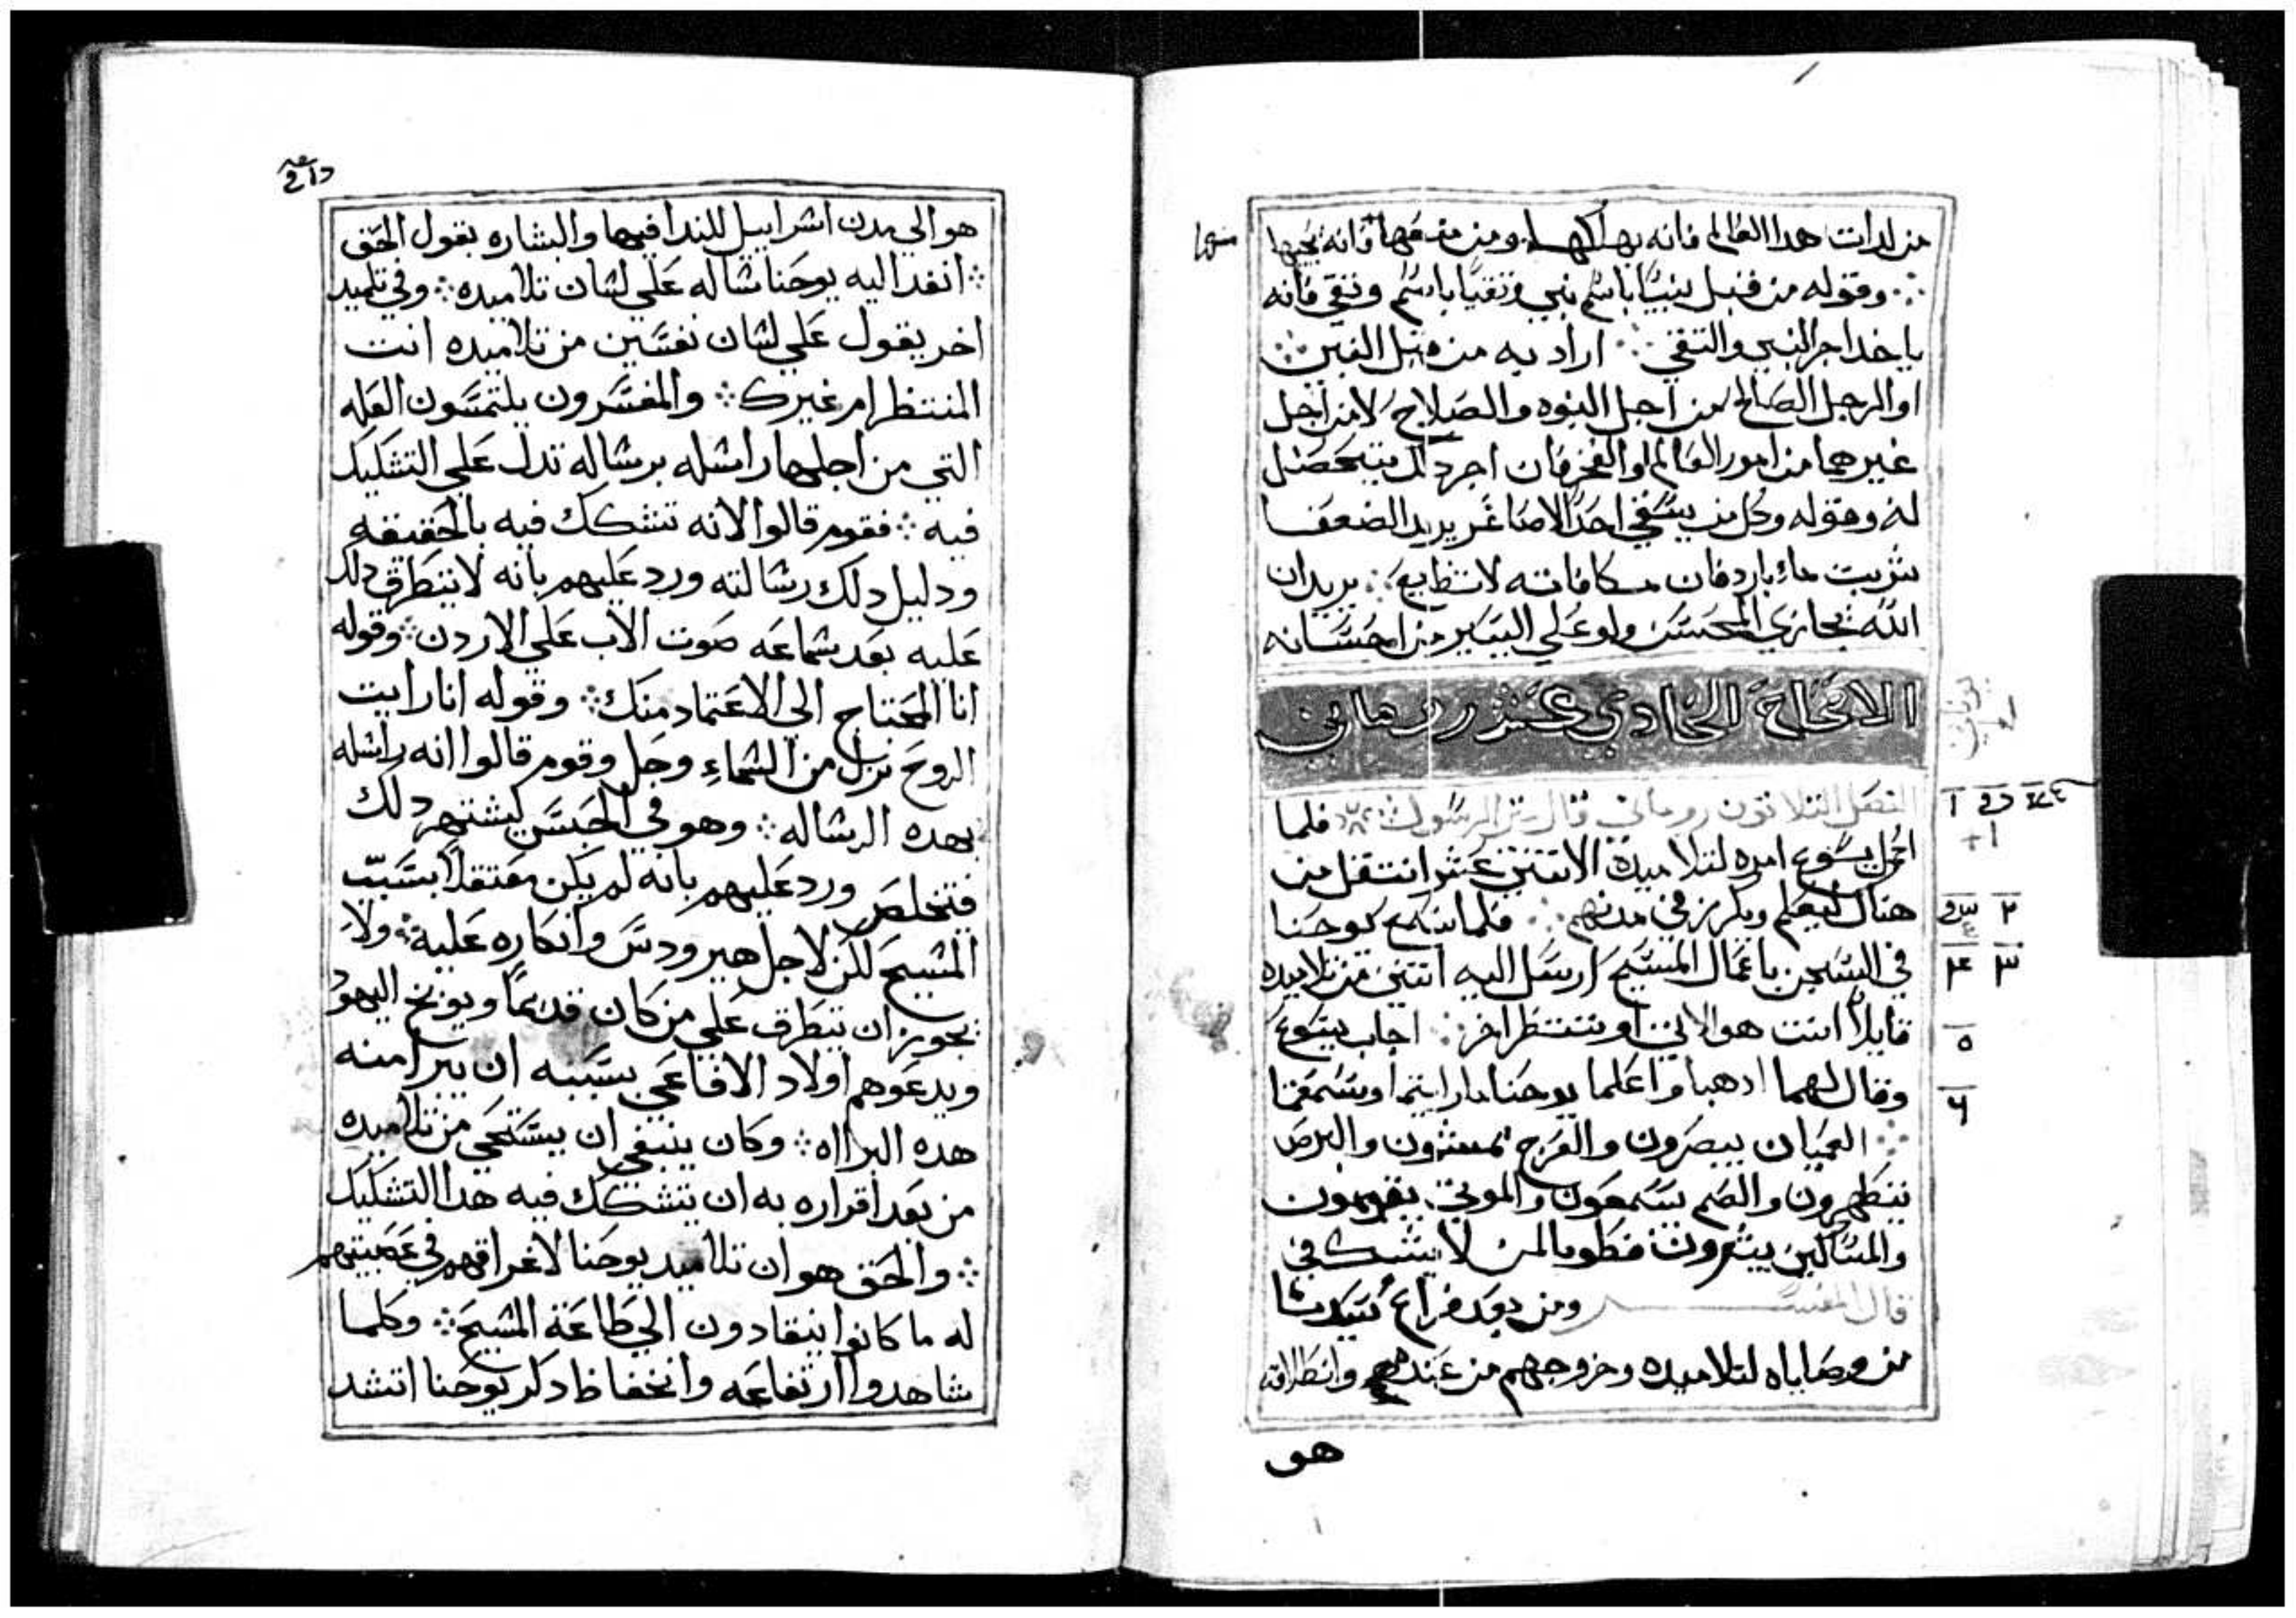 من لدات هدا العالم فانه يهلكها ومن مقتها فانه يحيها
منها
∴ وقوله من قبل نبيًا باسم نبي وتقيًا باسم وتقي فانه
ياخد اجر النبي والتقي ∴ اراد به من قبل النبي ∴
او الرجل الصالح من اجل النبوه والصلاح لا من اجل
غيرهما من امور العالم او الفخر فان اجر دلك يتحصل
له وقوله وكل من يسقي احد الاصاغر يريد الضعفا
شربت ماءٍ بارد فان مكافاته لا تضايع ∴ يريد ان
الله يجازي المحسن ولو علي اليسير من احسانه
الاصحاح الحادي عشر روماني
الفصل التلاتون روماني قال متي الرسول فلما
اكمل يسوع امره لتلاميده الاتني عشر انتقل من
هناك ليعلم ويكرز في مدنهم ∴ فلما سمع يوحنا
في السجن باعمال المسيح ارسل اليه اتنين من تلاميده
قايلاً انت هو الاتي او ننتظر اخر ∴ اجاب يسوع
وقال لهما ادهبا واعلما يوحنا بما رايتما وسمعتما
∴ العميان يبصرون والعرج يمشون والبرص
يتطهرون والصم يسمعون والموتي يقومون
والمساكين يبشرون فطوبا لمن لا يشك في
قال المفسر ومن بعد فراغ سيدنا
من وصاياه لتلاميده وخروجهم من عندهم وانطلاقه
هو
هو الي مدن اسراييل للندا فيها والبشاره بقول الحق
∴ انفد اليه يوحنا رساله علي لسان تلاميده ∴ وفي تلميد
اخر يقول علي لسان نفسين من تلاميده انت
المنتظر ام غيرك ∴ والمفسرون يلتمسون العله
التي من اجلها راسله برساله تدل علي التشكيك
فيه ∴ فقوم قالوا لانه تشكك فيه بالحقيقه
ودليل دلك رسالته ورد عليهم بانه لا يتطرق دلك
عليه بعد سماعه صوت الاب علي الاردن ∴ وقوله
انا المحتاج الي الاعتماد منك ∴ وقوله انا رايت
الروح نزل من السماءِ وحل وقوم قالوا انه راسله
بهده الرساله ∴ وهو في الحبس ليشتهر دلك
فتخلص ورد عليهم بانه لم يكن معتقلاً بسبب
المسيح لكن لاجل هيرودس وانكاره عليه ∴ ولا
يجوز ان يتطرق علي من كان قديمًا ويوبخ اليهود
ويدعوهم اولاد الافاعي بسببه ان يبرا منه
هده البرااه ∴ وكان ينبغي ان يستحي من تلاميده
من بعد اقراره به ان يتشكك فيه هدا التشكيك
∴ والحق هو ان تلاميد يوحنا لاغراقهم في عصبيتهم
له ما كانوا ينقادون الي طاعة المسيح ∴ وكلما
شاهدوا ارتفاعه وانخفاظ دكر يوحنا اتشد